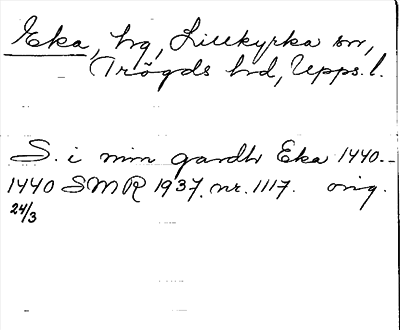 Eka, hg, Lillkyrka sn,
Trögds hd, Upps. l.
S. i min gardh Eka 1440.-
1440 SMR 1937. nr. 1117. orig.
24/3